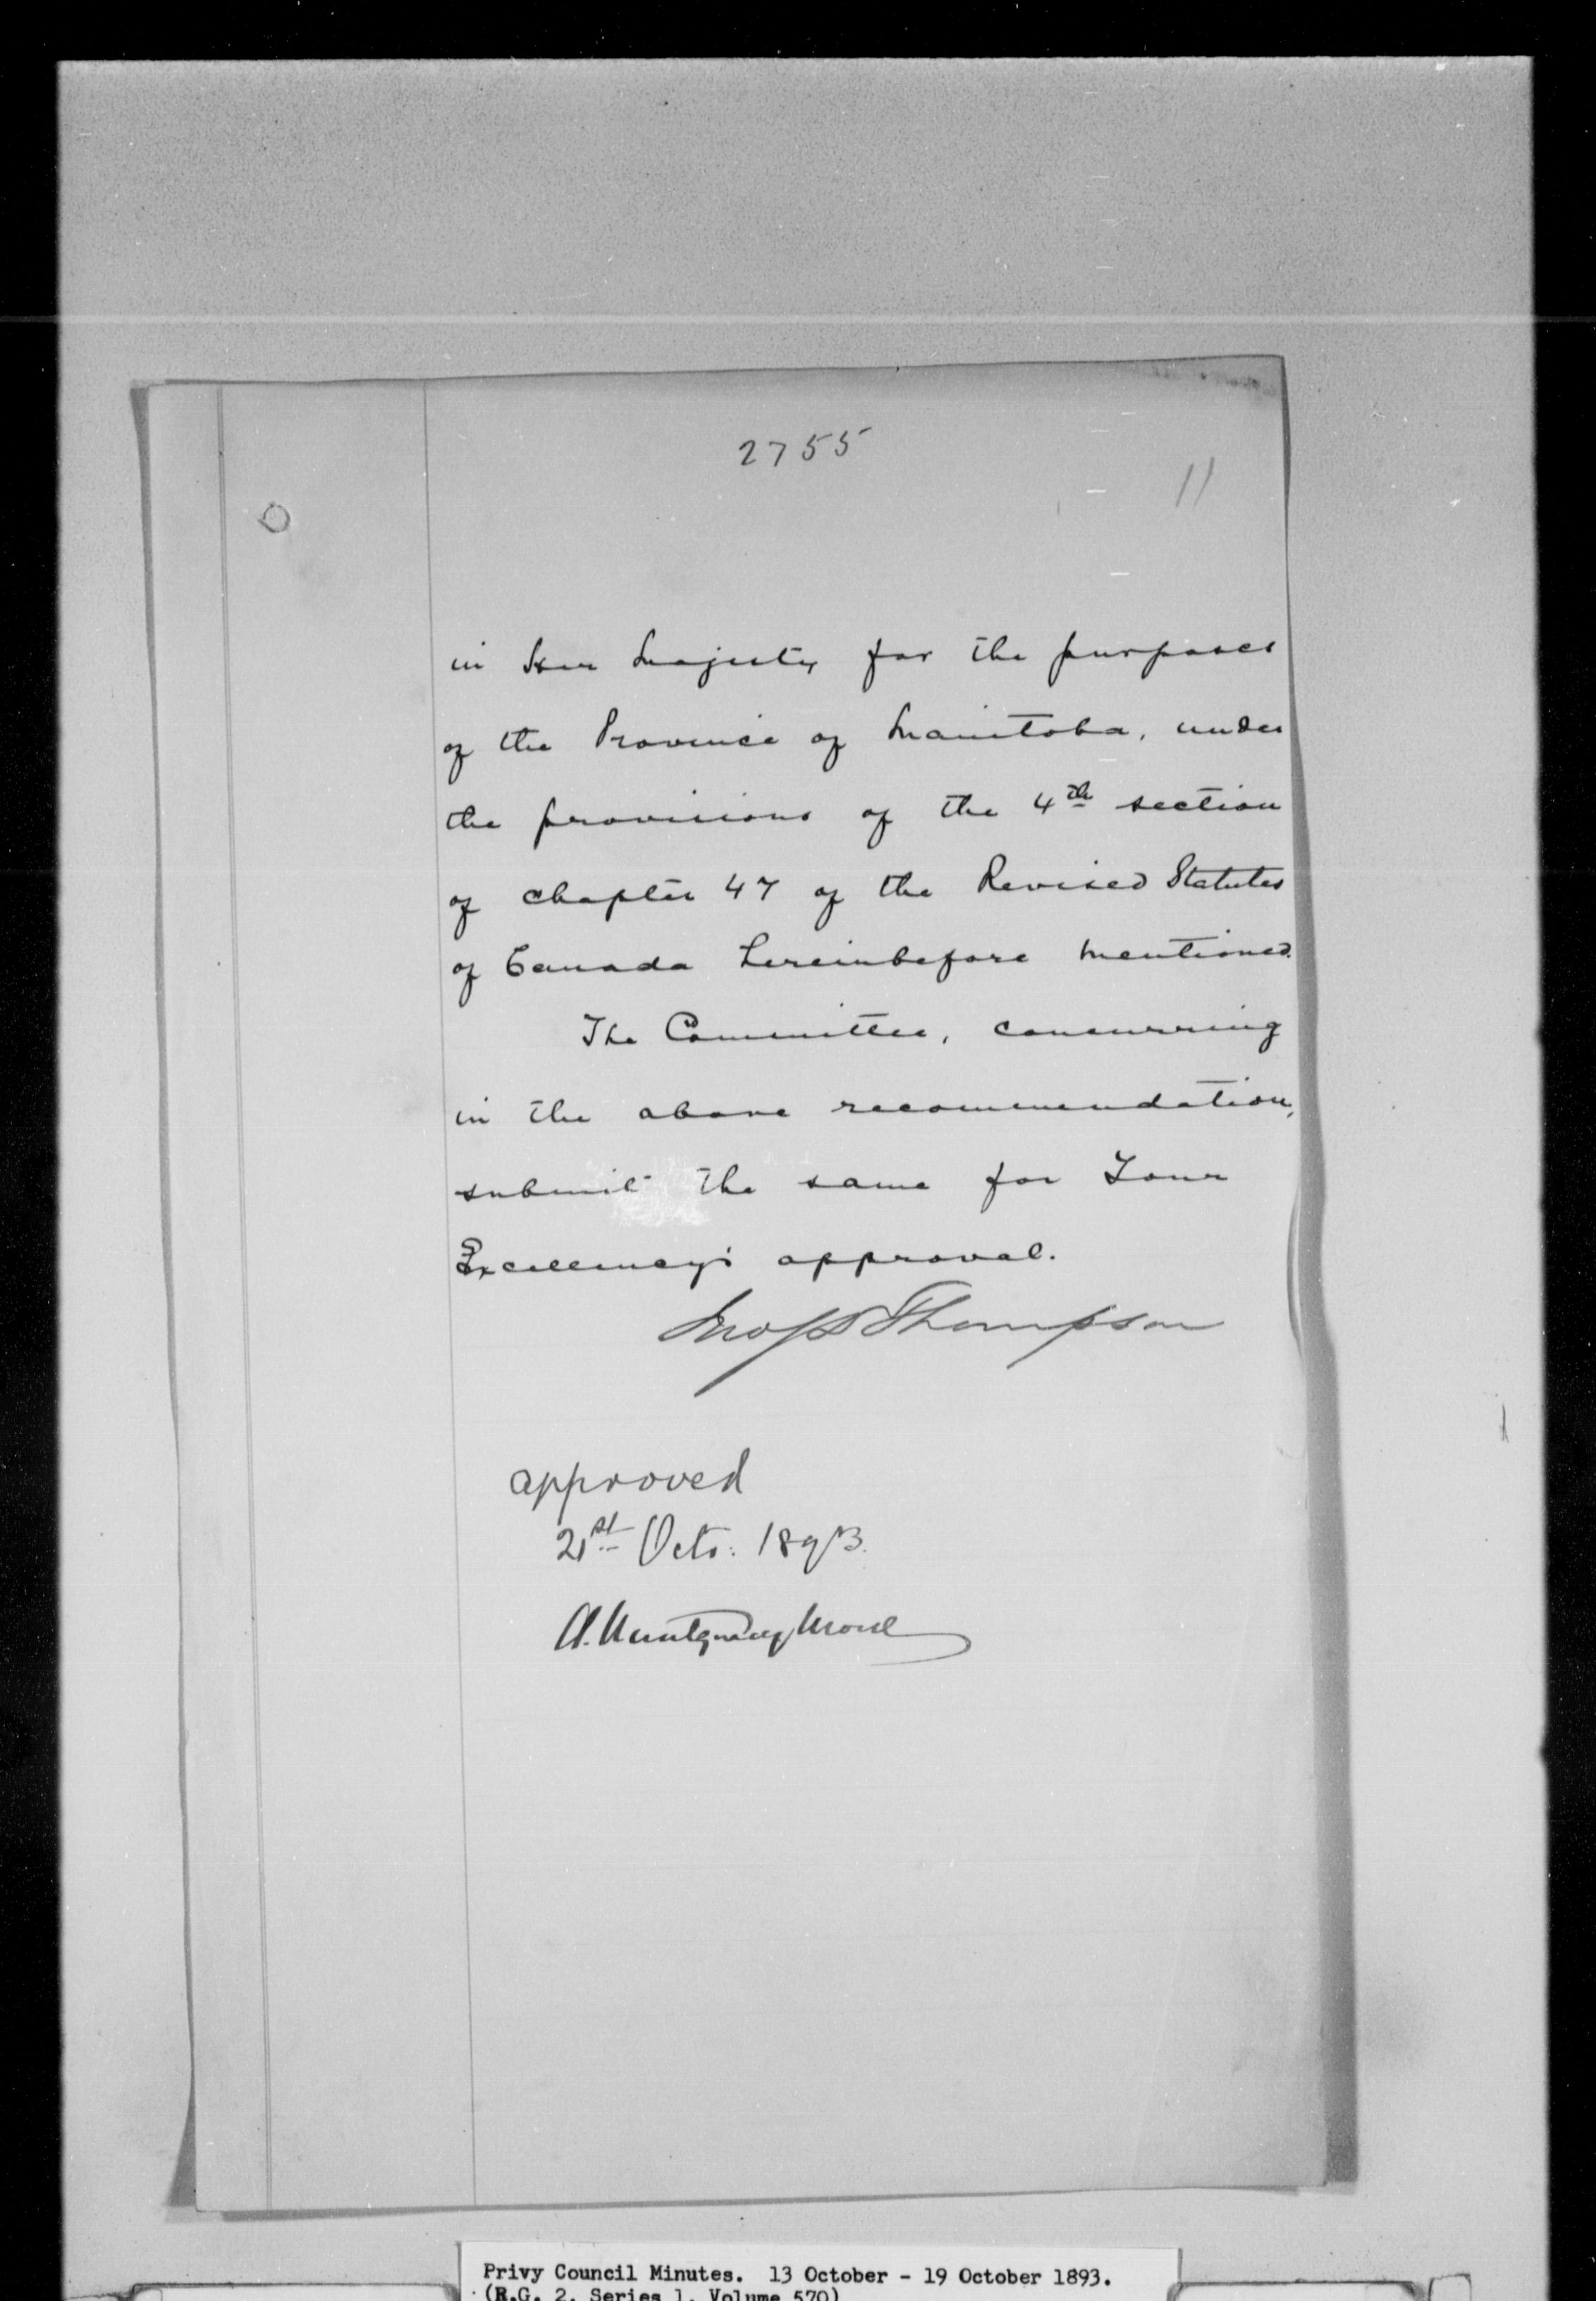 2755
11
in Her Majesty for the purposes
of the Province of Manitoba, under
the provisions of the 4th section
of chapter 47 of the Revised Statutes
of Canada hereinbefore mentioned.
The Committee, concurring
in the above recommendation,
submit the same for Your
Excellency's approval.
Jno S D Thompson
approved
21st Octr: 1893.
A. Montgomery Moore
Privy Council Minutes. 13 October - 19 October 1893.
(R.G. 2, Series 1, Volume 570)